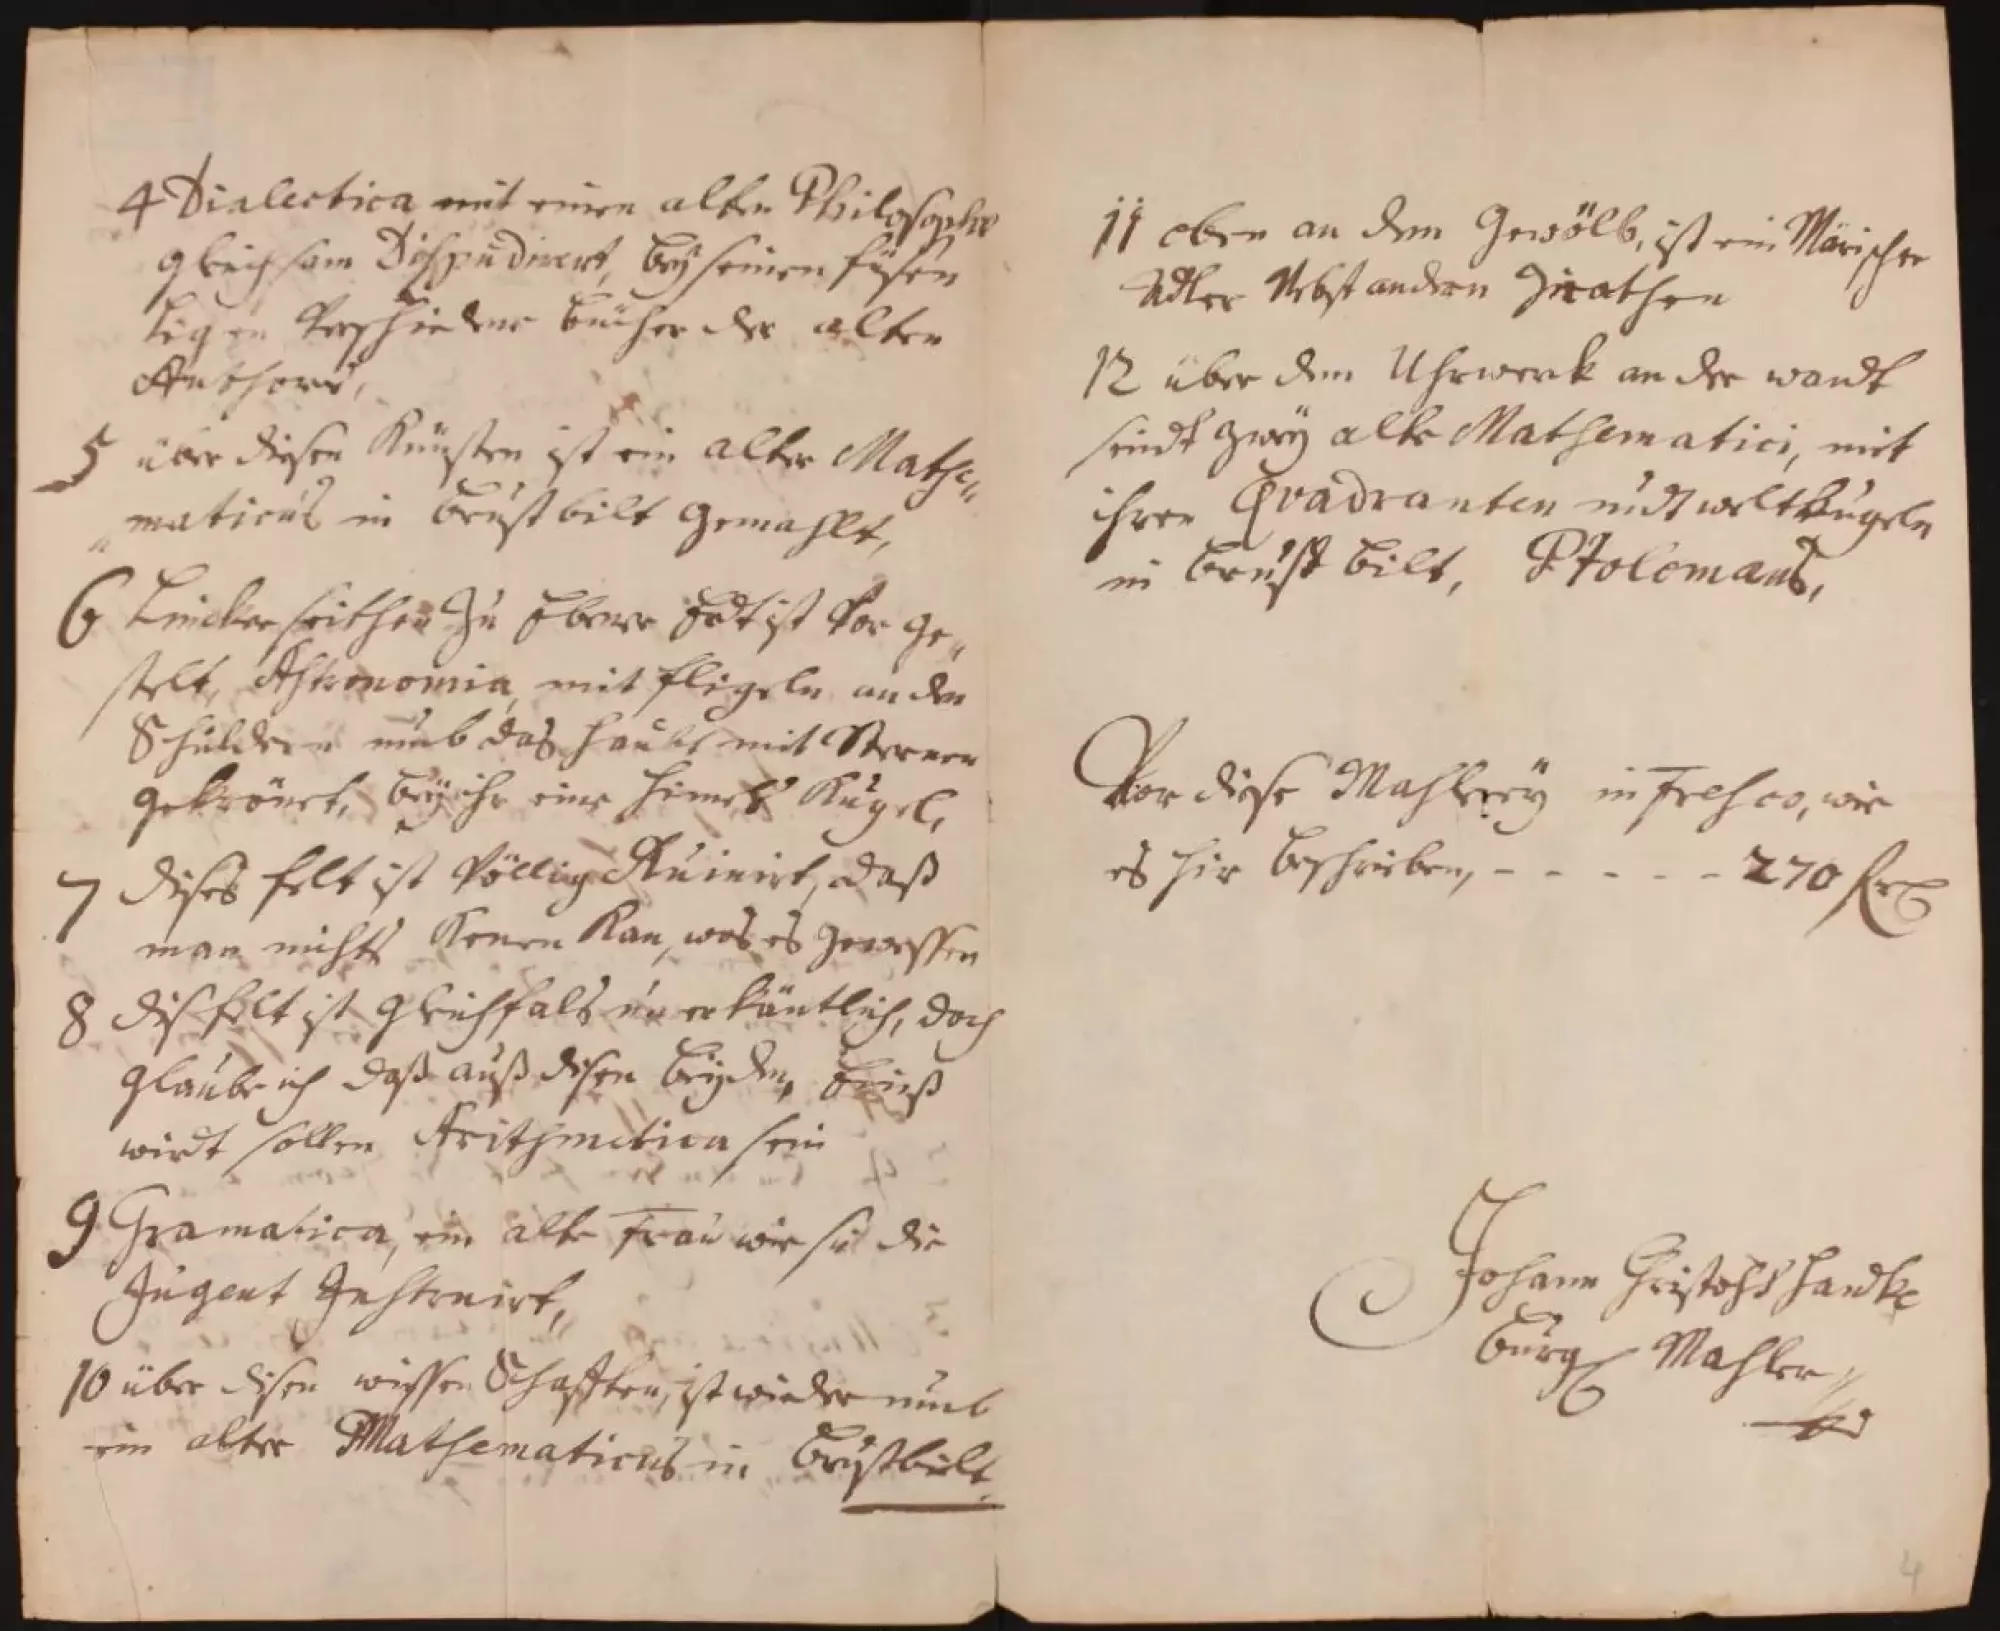 4 Dialectica mit einen alten Philosopho
gleichsam Dispudirert, bey seinen füsen
ligen verschiedene bücher der alten
Authorn,
5 über diesen Künsten ist ein alter Mathe=
maticus in brust bilt gemahlt,
6 Lincker seithen zu Ebener Erdt ist vor ge=
stelt, Astronomia, mit fligeln an den
Schuldern umb das haubt mit Sternen
gekrönet, bey ihr eine himels Kugel,
7 dises felt ist völlig Ruinirt, daß
man nichts kenen kan, was es gewessen
8 dis felt ist gleichfals unerkäntlich, doch
glaube ich daß auß disen beyden, Einß
wirdt sollen Arithmetica sein
9 Gramatica, ein alte Frau wie sie die
Jugent Instruirt,
10 über disen wissen Schafften, ist wieder umb
ein alter Mathematicus in brustbilt.
11 oben an dem gewölb, ist ein Märischer
Adler Nebst andern Zirathen
12 über dem Uhrwerck an der wandt
seindt zwey alte Mathematici, mit
ihren Qvadranten undt weltkugeln
in brust bilt, Ptolomaus,
Vor diese Mahlerey in Fresco, wie
es hir beschrieben, - - - - - - 270
Johann Christoph Handke
burg Mahler
4